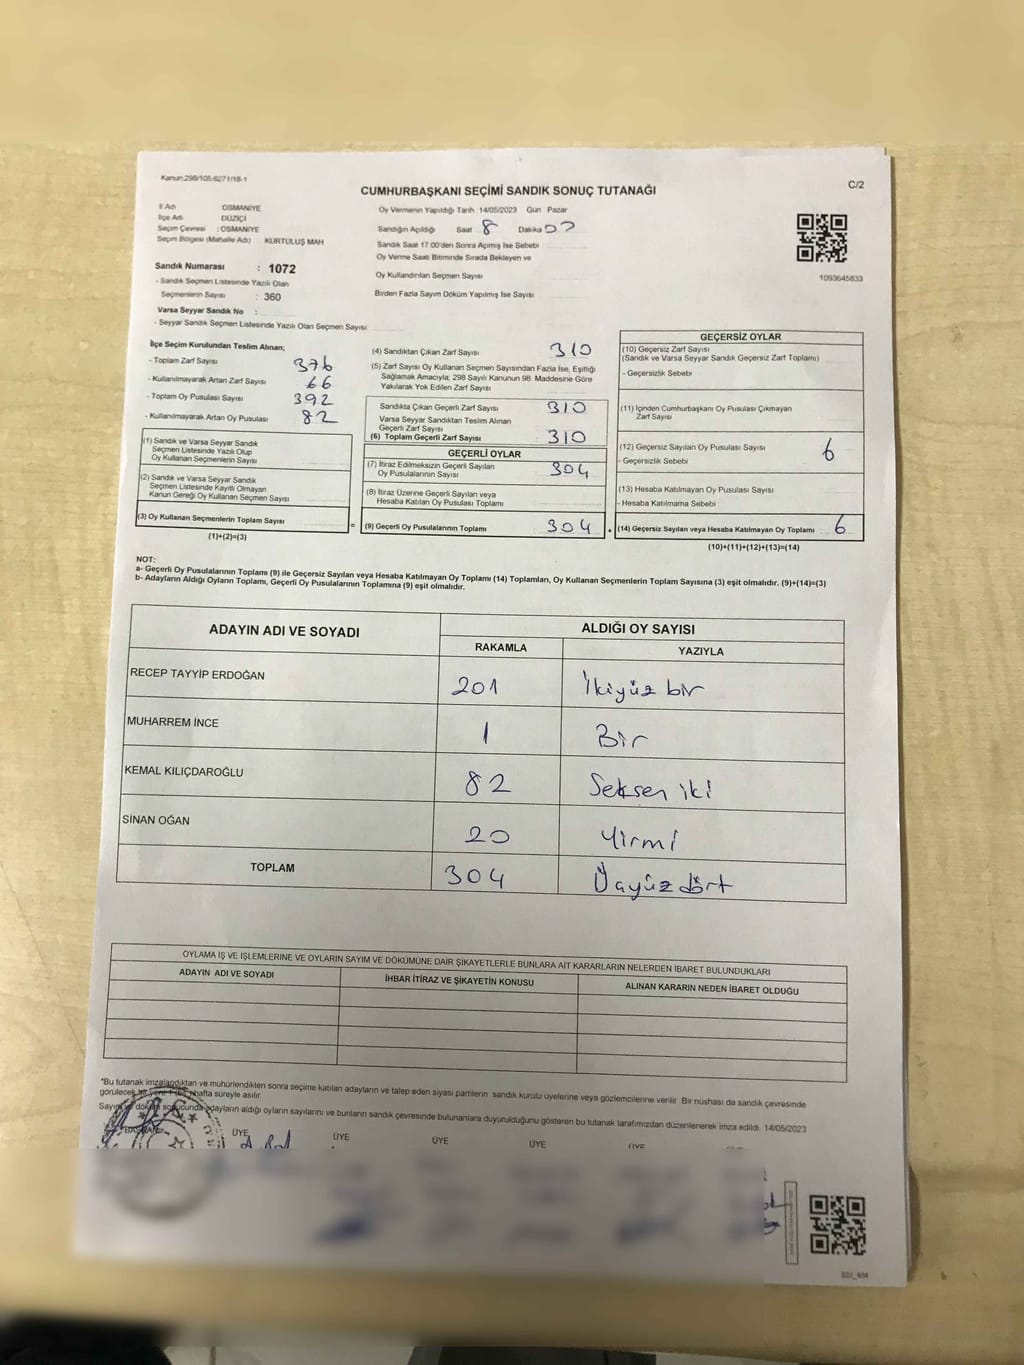 Kanun:298/105 6271/18-1
CUMHURBAŞKANI SEÇİMİ SANDIK SONUÇ TUTANAĞI
C/2
İl Adı OSMANİYE
İlçe Adı DÜZİÇİ
Seçim Çevresi : OSMANİYE
Seçim Bölgesi (Mahalle Adı) KURTULUŞ MAH
Sandık Numarası : 1072
- Sandık Seçmen Listesinde Yazılı Olan
Seçmenlerin Sayısı : 360
Varsa Seyyar Sandık No :
- Seyyar Sandık Seçmen Listesinde Yazılı Olan Seçmen Sayısı:
Oy Vermenin Yapıldığı Tarih 14/05/2023 Gün Pazar
Sandığın Açıldığı Saat 8 Dakika
Sandık Saat 17:00'den Sonra Açımış İse Sebebi
Oy Verme Saati Bitiminde Sırada Bekleyen ve
Oy Kullandırılan Seçmen Sayısı
Birden Fazla Sayım Döküm Yapılmış İse Sayısı
1093645833
İlçe Seçim Kurulundan Teslim Alınan;
- Toplam Zarf Sayısı 376
- Kullanılmayarak Artan Zarf Sayısı 66
- Toplam Oy Pusulası Sayısı 392
- Kullanılmayarak Artan Oy Pusulası 82
(1) Sandık ve Varsa Seyyar Sandık
Seçmen Listesinde Yazılı Olup
Oy Kullanan Seçmenlerin Sayısı
(2) Sandık ve Varsa Seyyar Sandık
Seçmen Listesinde Kayıtlı Olmayan
Kanun Gereği Oy Kullanan Seçmen Sayısı
(3) Oy Kullanan Seçmenlerin Toplam Sayısı =
(1)+(2)=(3)
(4) Sandıktan Çıkan Zarf Sayısı 310
(5) Zarf Sayısı Oy Kullanan Seçmen Sayısından Fazla İse, Eşitliği
Sağlamak Amacıyla; 298 Sayılı Kanunun 98. Maddesine Göre
Yakılarak Yok Edilen Zarf Sayısı
Sandıkta Çıkan Geçerli Zarf Sayısı 310
Varsa Seyyar Sandıktan Teslim Alınan
Geçerli Zarf Sayısı
(6) Toplam Geçerli Zarf Sayısı 310
GEÇERLİ OYLAR
(7) İtiraz Edilmeksizin Geçerli Sayılan
Oy Pusulalarının Sayısı 304
(8) İtiraz Üzerine Geçerli Sayılan veya
Hesaba Katılan Oy Pusulası Toplamı
(9) Geçerli Oy Pusulalarının Toplamı 304 +
GEÇERSİZ OYLAR
(10) Geçersiz Zarf Sayısı
(Sandık ve Varsa Seyyar Sandık Geçersiz Zarf Toplamı)
- Geçersizlik Sebebi
(11) İçinden Cumhurbaşkanı Oy Pusulası Çıkmayan
Zarf Sayısı
(12) Geçersiz Sayılan Oy Pusulası Sayısı 6
- Geçersizlik Sebebi
(13) Hesaba Katılmayan Oy Pusulası Sayısı
- Hesaba Katılmama Sebebi
(14) Geçersiz Sayılan veya Hesaba Katılmayan Oy Toplamı 6
(10)+(11)+(12)+(13)=(14)
NOT:
a- Geçerli Oy Pusulalarının Toplamı (9) ile Geçersiz Sayılan veya Hesaba Katılmayan Oy Toplamı (14) Toplamları, Oy Kullanan Seçmenlerin Toplam Sayısına (3) eşit olmalıdır. (9)+(14)=(3)
b- Adayların Aldığı Oyların Toplamı, Geçerli Oy Pusulalarının Toplamına (9) eşit olmalıdır.
ADAYIN ADI VE SOYADI
ALDIĞI OY SAYISI
RAKAMLA YAZIYLA
RECEP TAYYİP ERDOĞAN 201 İkiyüz bir
MUHARREM İNCE 1 Bir
KEMAL KILIÇDAROĞLU 82 Seksen iki
SİNAN OĞAN 20 Yirmi
TOPLAM 304 Üçyüz dört
OYLAMA İŞ VE İŞLEMLERİNE VE OYLARIN SAYIM VE DÖKÜMÜNE DAİR ŞİKAYETLERLE BUNLARA AİT KARARLARIN NELERDEN İBARET BULUNDUKLARI
ADAYIN ADI VE SOYADI İHBAR İTİRAZ VE ŞİKAYETİN KONUSU ALINAN KARARIN NEDEN İBARET OLDUĞU
*Bu tutanak imzalandıktan ve mühürlendikten sonra seçime katılan adayların ve talep eden siyasi partilerin sandık kurulu üyelerine veya gözlemcilerine verilir. Bir nüshası da sandık çevresinde
görülecek bir yere 1 hafta süreyle asılır.
Sayım ve döküm sonucunda adayların aldığı oyların sayılarını ve bunların sandık çevresinde bulunanlara duyurulduğunu gösteren bu tutanak tarafımızdan düzenlenerek imza edildi. 14/05/2023
BAŞKAN ÜYE ÜYE ÜYE ÜYE ÜYE